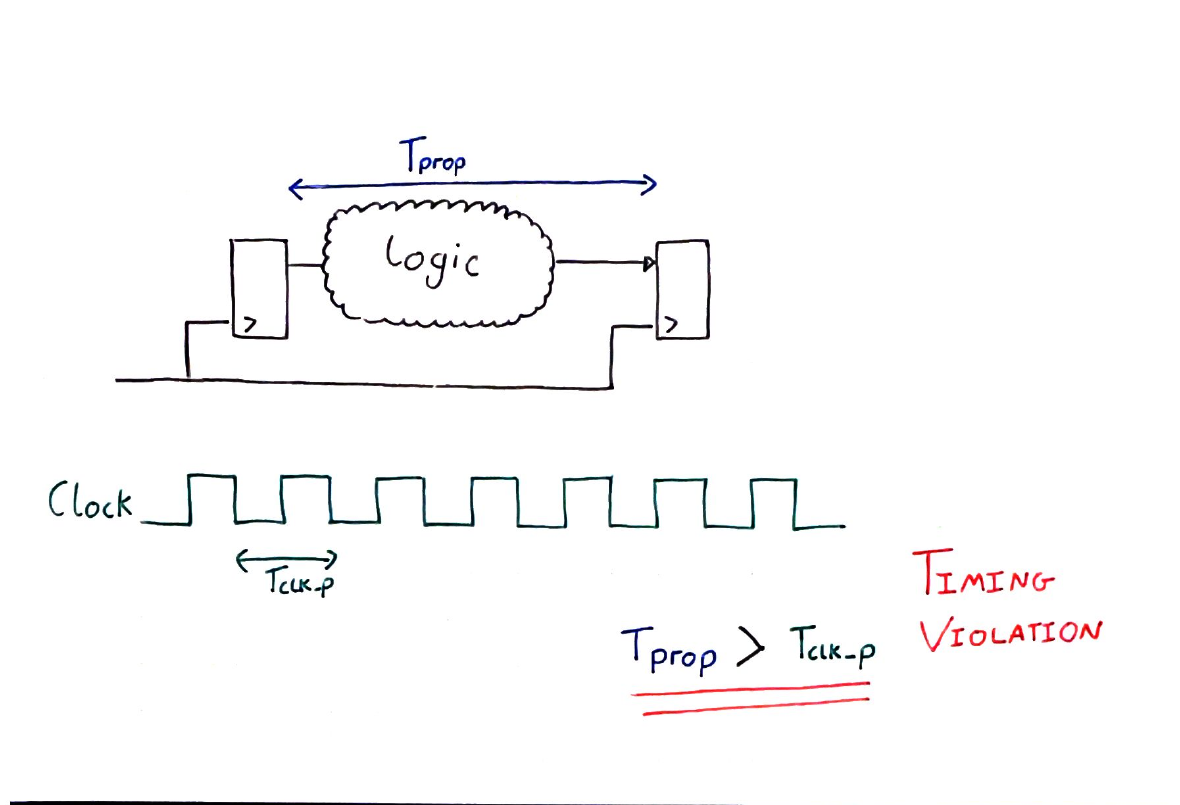 Tprop
Logic
Clock
TCLK-P
Tprop > TCLK-P
TIMING
VIOLATION